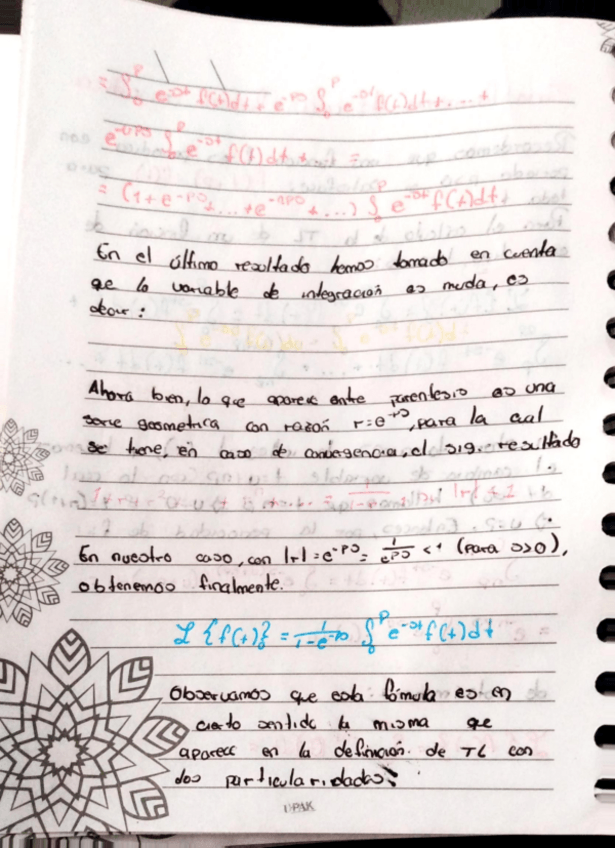 = ∫₀ᴾ e^-st f(t)dt + e^-ps ∫₀ᴾ e^-st f(t)dt + ... +
e^-nps ∫₀ᴾ e^-st f(t)dt + ... =
= (1 + e^-ps + ... + e^-nps + ...) ∫₀ᴾ e^-st f(t)dt
En el último resultado hemos tomado en cuenta
qe la variable de integración es muda, es
decir:
Ahora bien, lo que aparece entre parentesis es una
serie geometrica con razón r=e^-ps, para la cual
se tiene, en caso de convergencia, el sig. resultado
En nuestro caso, con |r| = e^-ps = 1/e^ps < 1 (para s>0),
obtenemos finalmente.
ℒ {f(t)} = 1/1-e^-ps ∫₀ᴾ e^-st f(t)dt
Observamos que esta fómula es en
cierto sentido la misma que
aparece en la definición de TL con
dos particularidades: